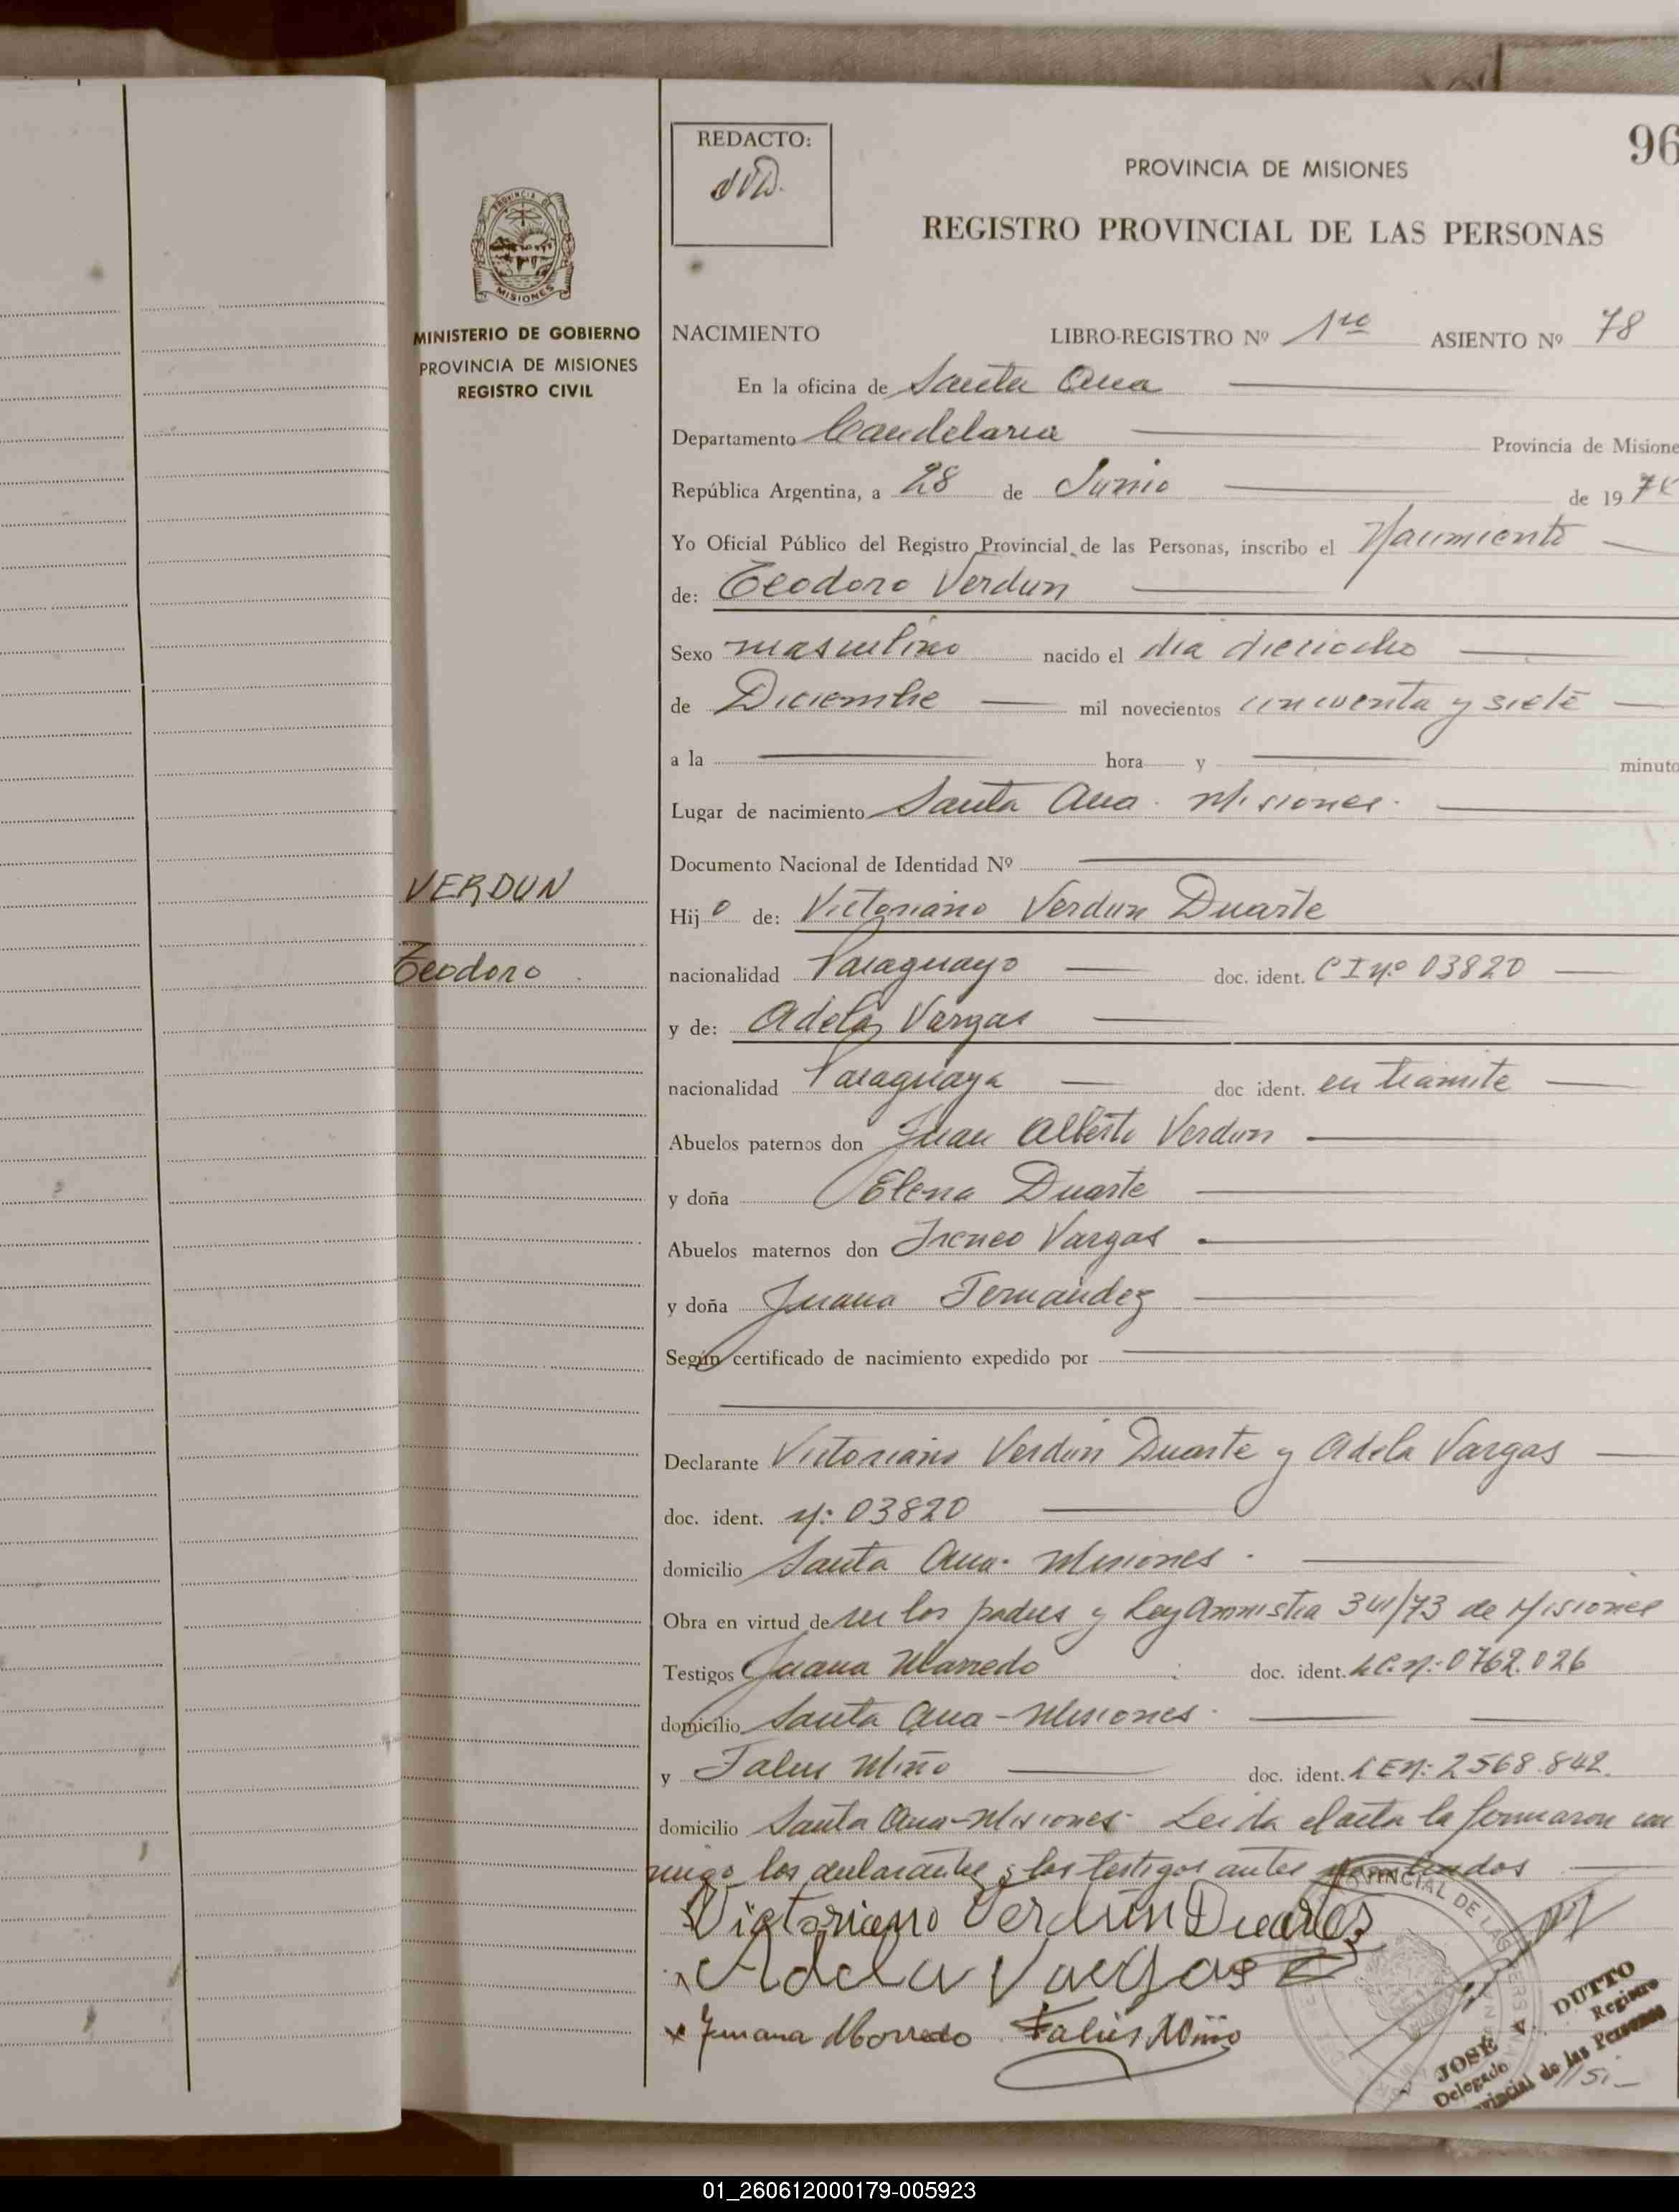 96
REDACTO:
PROVINCIA DE MISIONES
REGISTRO PROVINCIAL DE LAS PERSONAS
MISIONES
MINISTERIO DE GOBIERNO
PROVINCIA DE MISIONES
REGISTRO CIVIL
NACIMIENTO LIBRO-REGISTRO Nº 1ro ASIENTO Nº 78
En la oficina de Santa Ana
Departamento Candelaria Provincia de Misione
República Argentina, a 28 de Junio de 19 7
Yo Oficial Público del Registro Provincial de las Personas, inscribo el Nacimiento
de: Teodoro Verdun
Sexo masculino nacido el dia dieciocho
de Diciembre mil novecientos cincuenta y siete
a la hora y minuto
Lugar de nacimiento Santa Ana. Misiones.
Documento Nacional de Identidad Nº
VERDUN
Teodoro
Hij o de: Victoriano Verdun Duarte
nacionalidad Paraguayo doc. ident. C I Nº 03820
y de: Adela Vargas
nacionalidad Paraguaya doc ident. en tramite
Abuelos paternos don Juan Alberto Verdun
y doña Elena Duarte
Abuelos maternos don Ireneo Vargas
y doña Juana Fernandez
Según certificado de nacimiento expedido por
Declarante Victoriano Verdun Duarte y Adela Vargas
doc. ident. Nº 03820
domicilio Santa Ana. Misiones.
Obra en virtud de ser los padres y Ley Amnistia 341/73 de Misiones
Testigos Juana doc. ident. L.C. Nº: 0762.026
domicilio Santa Ana - Misiones.
y Miño doc. ident. L E Nº: 2568.842.
domicilio Santa Ana - Misiones. Leida el acta la firmaron con
migo los declarantes y los testigos antes
Victoriano Verdún Duarte
Adela Vargas
x Juana Miño
JOSE A. DUTTO
Delegado Registro
vincial de las Personas
01_260612000179-005923